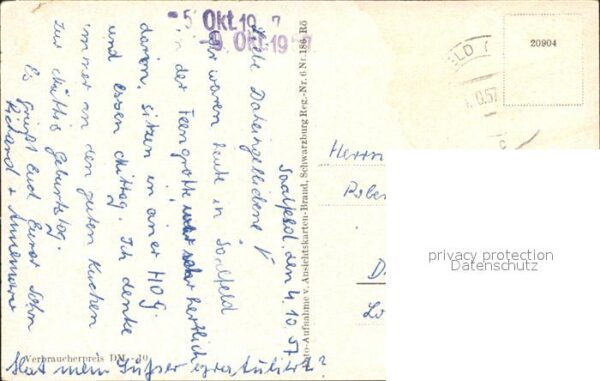 Saalfeld, den 4.10.57
Liebe Daheimgebliebene!
Wir waren heute in Saalfeld
in der Feengrotte, war sehr herrlich
darin, sitzen in einer HOG
und essen Mittag. Ich denke
immer an den guten Kuchen
zu Mutters Geburtstag.
Es grüßt Euch Euer Sohn
Richard + Annemarie
Hat mein gratuliert?
- 5. Okt. 19 7
9. Okt. 19 7
Foto-Aufnahme v. Ansichtskarten-Brand, Schwarzburg Reg.-Nr. 6 Nr. 186, Rö
Verbraucherpreis DM -.10
20904
ELD (
.0.57
Herrn
privacy protection
Datenschutz